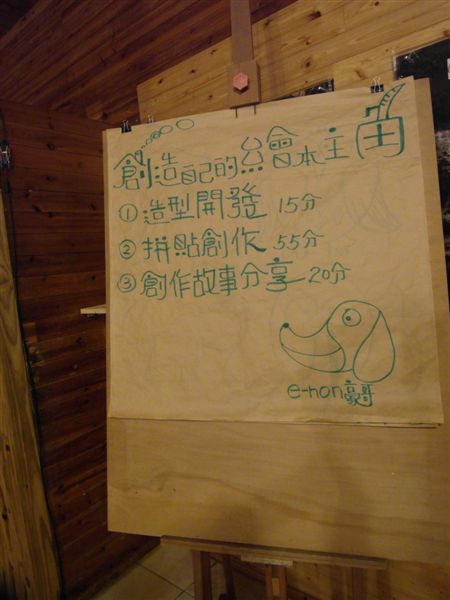 創造自己的繪本主角
① 造型開發 15分
② 拼貼創作 55分
③ 創作故事分享 20分
e-hon豪哥